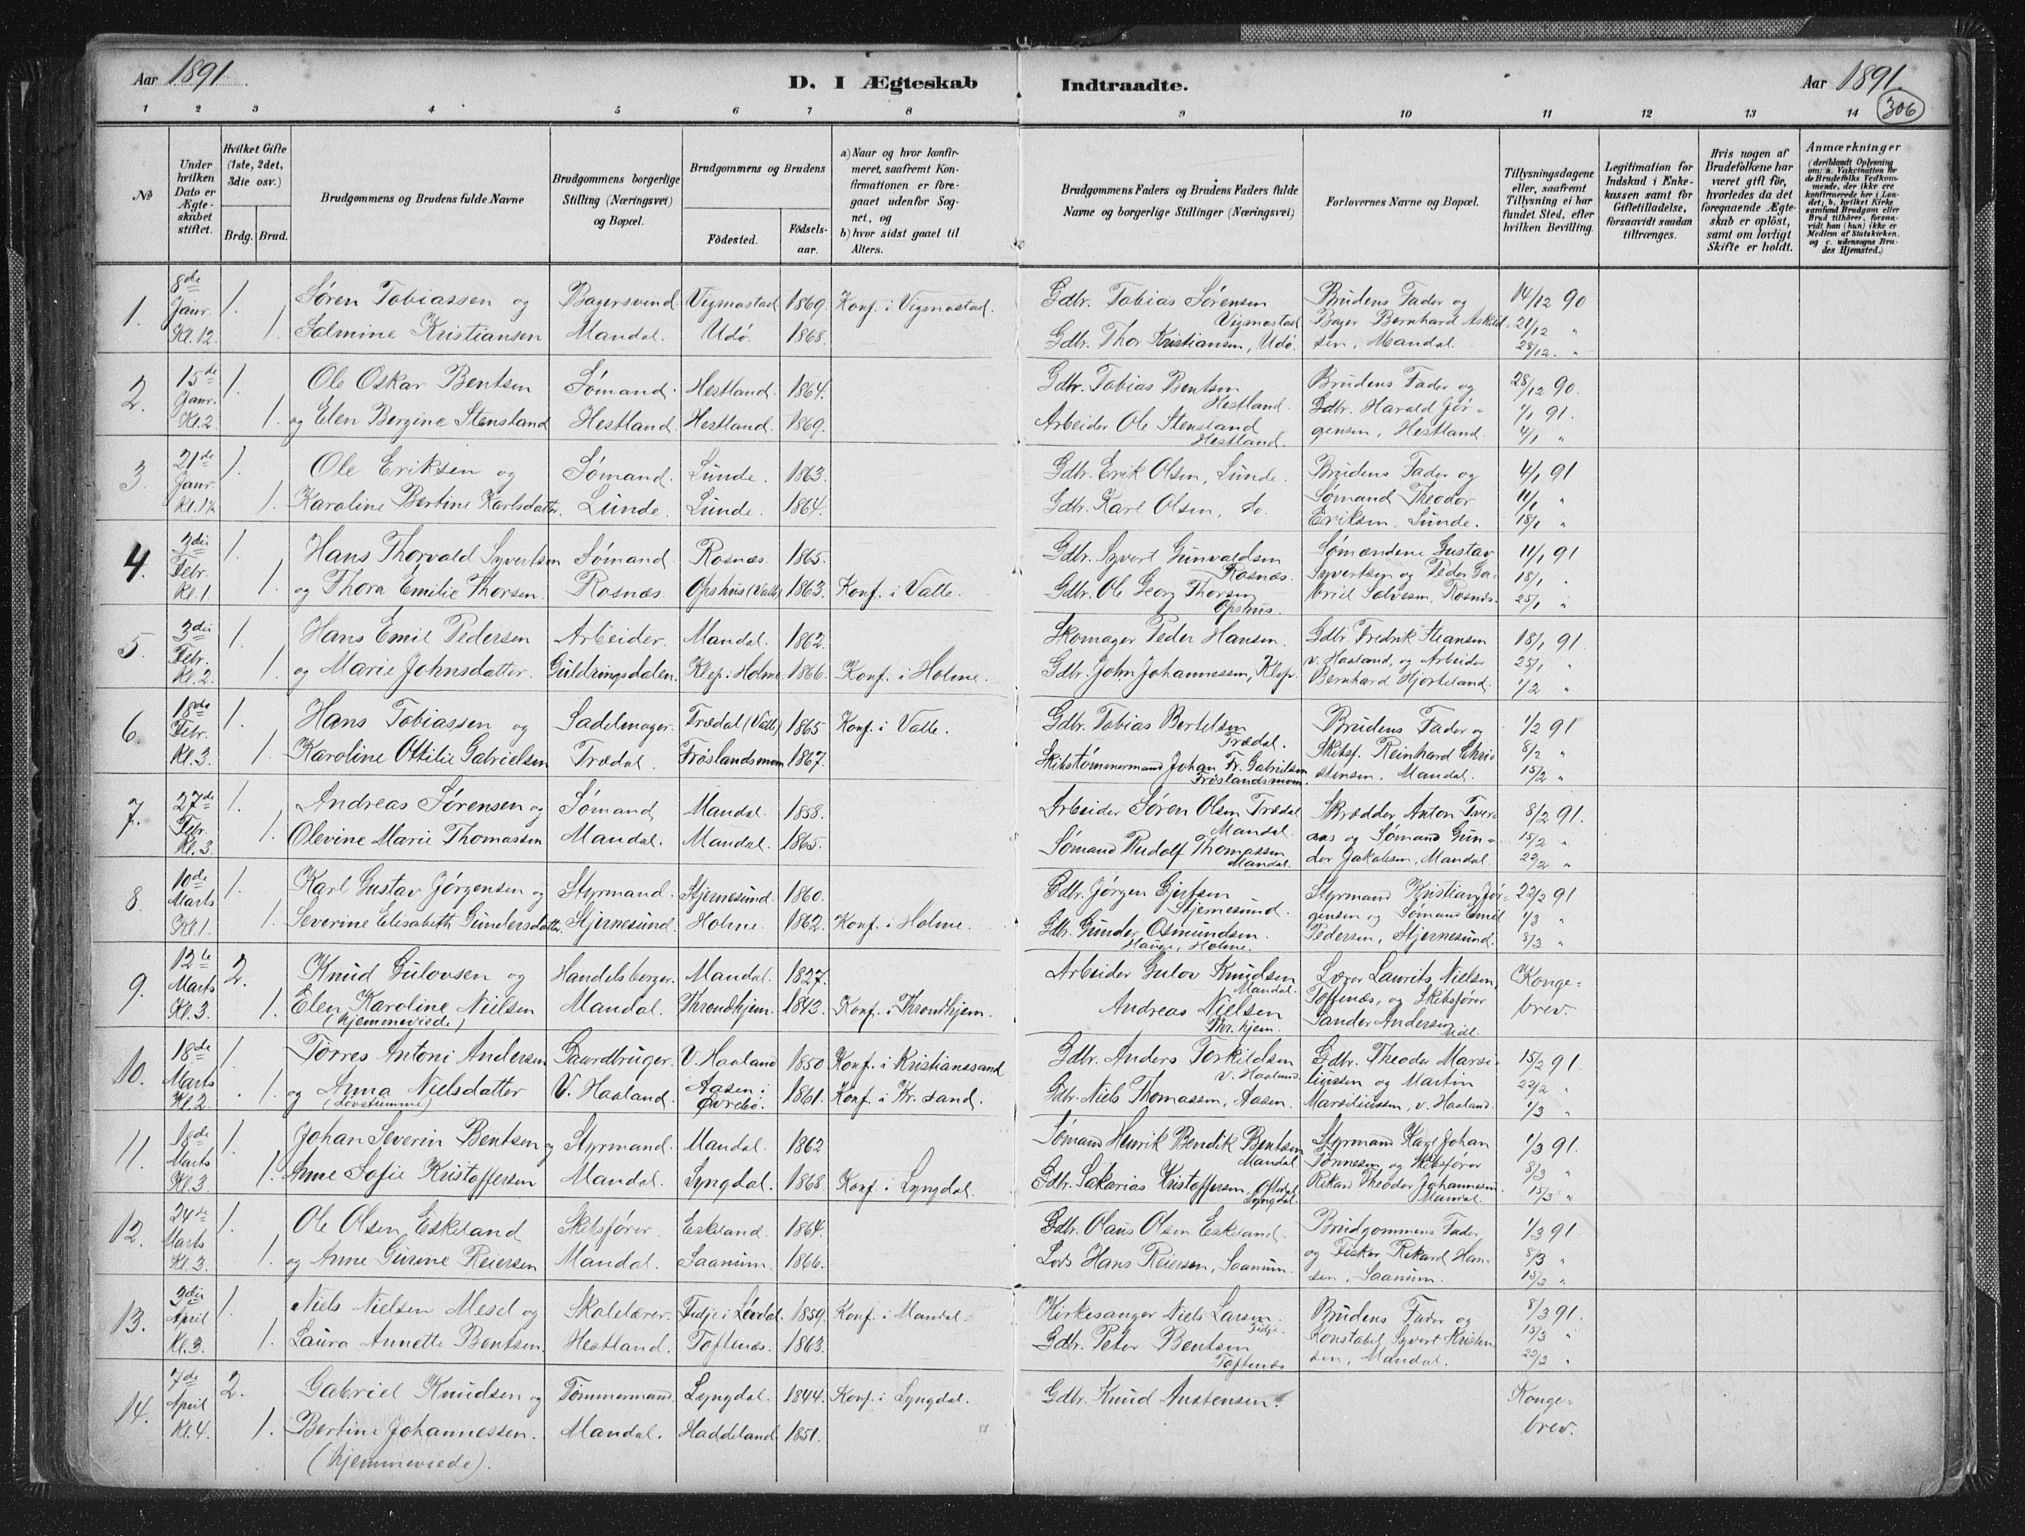 Aar 1891. D. I Ægteskab Indtraadte. Aar 1891.
306
1 2 3 4 5 6 7 8 9 10 11 12 13 14
No
Under hvilken Dato er Ægteskabet stiftet.
Hvilket Gifte (1ste, 2det, 3die osv.)
Brdg. Brud.
Brudgommens og Brudens fulde Navne
Brudgommens borgerlige Stilling (Næringsvei) og Bopæl.
Brudgommens og Brudens
Fødested.
Fødselsaar.
a) Naar og hvor konfirmeret, saafremt Konfirmationen er foregaaet udenfor Sognet, og
b) hvor sidst gaaet til Alters.
Brudgommens Faders og Brudens Faders fulde Navne og borgerlige Stillinger (Næringsvei)
Forlovernes Navne og Bopæl.
Tillysningsdagene eller, saafremt Tillysning ei har fundet Sted, efter hvilken Bevilling.
Legitimation for Indskud i Enkekassen samt for Giftetilladelse, forsaavidt saadan tiltrænges.
Hvis nogen af Brudefolkene har været gift før, hvorledes da det foregaaende Ægteskab er opløst, samt om lovligt Skifte er holdt.
Anmærkninger (deriblandt Oplysning om: a. Vaccination for de Brudefolks Vedkommende, der ikke ere konfirmerede her i Landet; b. hvilket Kirkesamfund Brudgom eller Brud tilhører, forsaavidt han (hun) ikke er Medlem af Statskirken, og c. udensogns Brudes Hjemsted.)
1. 8de Janr. Kl. 12. 1. Søren Tobiassen og Bagersvend Vigmostad 1869. Konf. i Vigmostad. Gdbr. Tobias Sørensen Vigmostad Brudens Fader og 14/12 90
1. Salmine Kristiansen Mandal. Udø. 1868. Gdbr. Thor Kristiansen, Udø. Bager Bernhard Askildsen, Mandal. 21/12 " 28/12. "
2. 15de Janr. Kl. 2. 1. Ole Oskar Bentsen Sømand. Hestland. 1864. Gdbr. Tobias Bentsen Hestland. Brudens Fader og 28/12 90
1. og Elen Bergine Stensland Hestland. Hestland. 1869. Arbeider Ole Stensland Hestland. Gdbr. Harald Jørgensen, Hestland. 1/1 91. 4/1 "
3. 21de Janr. Kl. 1. Ole Eriksen og Sømand. Lunde. 1863. Gdbr. Erik Olsen, Lunde. Brudens Fader og 4/1 91
1. Karoline Bertine Karlsdatter. Lunde. Lunde. 1864. Gdbr. Karl Olsen, do. Sømand Theodor Eriksen, Lunde. 11/1 " 18/1 "
4. 3die Febr. Kl. 1 1. Hans Thorvald Syvertsen Sømand. Rosnæs. 1865. Gdbr. Syvert Gunvaldsen Rosnæs. Sømændene Gustav 11/1 91
1. og Thora Emilie Thorsen. Rosnæs. Opshus (Valle) 1863. Konf. i Valle. Gdbr. Ole Georg Thorsen Opshus. Syvertsen og Peder Gabriel Salvesen, Rosnæs. 18/1 " 25/1 "
5. 3die Febr. Kl. 2. 1. Hans Emil Pedersen Arbeider. Mandal. 1862. Skomager Peder Hansen. Gdbr. Fredrik 18/1 91.
1. og Marie Johnsdatter Guldringsdalen. Klep i Holme. 1866. Konf. i Holme. Gdbr. John Johannessen, Klep. v. Haaland, og Arbeider Bernhard Hjorteland. 25/1 " 1/2 "
6. 18de Febr. Kl. 3. 1. Hans Tobiassen og Sadelmager. Trædal (Valle) 1865 Konf. i Valle. Gdbr. Tobias Bertelsen Trædal. Brudens Fader og 1/2 91
1. Karoline Ottilie Gabrielsen Trædal. Frøslandsmoen 1867. Skibstømmermand Johan Fr. Gabrielsen Frøslandsmoen. Skibsf. Reinhard Christensen, Mandal. 8/2 " 15/2 "
7. 27de Febr. Kl. 3 1. Andreas Sørensen og Sømand, Mandal. 1858. Arbeider Søren Olsen Trædal Mandal. Skrædder Anton Tveraas 8/2 91.
1. Olevine Marie Thomassen Mandal. Mandal. 1865. Sømand Rudolf Thomassen Mandal. og Sømand Gunder Jakobsen, Mandal. 15/2 " 22/2 "
8. 10de Marts Kl. 1 1. Karl Gustav Jørgensen og Styrmand. Stjernesund. 1860. Gdbr. Jørgen Gjertsen Stjernesund. Styrmand Kristian Jør- 22/2 91
1. Severine Elisabeth Gundersdatter. Stjernesund. Holme. 1862. Konf. i Holme. Gdbr. Gunder Osmundsen. Hauge, Holme. gensen og Sømand Emil Pedersen, Stjernesund. 1/3 " 8/3 "
9. 12te Marts Kl. 3. 2. Knud Gulovsen og Handelsborger. Mandal. 1827. Arbeider Gulov Knudsen Mandal. Lærer Laurits Nielsen, Konge-
1. Elen Karoline Nielsen (hjemmeviede) Mandal. Throndhjem. 1843. Konf. i Throndhjem. Andreas Nielsen Thr.hjem. Toftenæs, og Skibsfører Sander Andersen brev.
10. 18de Marts Kl. 2. 1. Tørres Antoni Andersen Gaardbruger. V. Haaland 1850 Konf. i Kristianssand Gdbr. Anders Torkildsen v. Haaland. Gdbr. Theodor Marsi- 15/2 91
1. og Anna Nielsdatter (døvstumme) V. Haaland. Aasen i Øvrebø. 1861. Konf. i Kr.sand. Gdbr. Niels Thomassen, Aasen. liussen og Martin Marsiliussen, v. Haaland. 22/2 " 1/3 "
11. 18de Marts Kl. 3. 1. Johan Severin Bentsen og Styrmand. Mandal. 1862 Sømand Henrik Bendik Bentsen Mandal. Styrmand Karl Johan 1/3 91.
1. Anne Sofie Kristoffersen Mandal. Lyngdal. 1868. Konf. i Lyngdal. Gdbr. Sakarias Kristoffersen, Lyngdal. Tønnesen, og Skibsfører Rikard Theodor Johannesen Mandal. 8/3 " 15/3 "
12. 24de Marts Kl. 3. 1. Ole Olsen Eskeland Skibsfører. Eskeland. 1864. Gdbr. Olaus Olsen Eskeland. Brudgommens Fader, 1/3 91
1. og Anne Gurine Reiersen Mandal. Saanum. 1866. Lods Hans Reiersen, Saanum. og Fisker Rikard Hansen, Saanum. 8/3 " 15/3 "
13. 3die April Kl. 3. 1. Niels Nielsen Mesel og Skolelærer. Fidje i Løvdal. 1859. Konf. i Mandal. Kirkesanger Niels Larsen. Fidje. Brudens Fader og 8/3 91.
1. Laura Annette Bentsen. Hestland. Toftenæs. 1863. Gdbr. Peter Bentsen Toftenæs Konstabel Syvert Kristensen, Mandal. 15/3 " 22/3 "
14. 7de April Kl. 4. 2. Gabriel Knudsen og Tømmermand. Lyngdal. 1844. Konf. i Lyngdal. Gdbr. Knud Austensen. Konge-
1. Bertine Johannessen. (hjemmeviede). Mandal. Haddeland. 1851. brev.